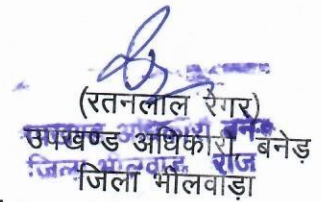 (रतनलाल रैगर)
उपखण्ड अधिकारी बनेड़
जिला भीलवाड़ा